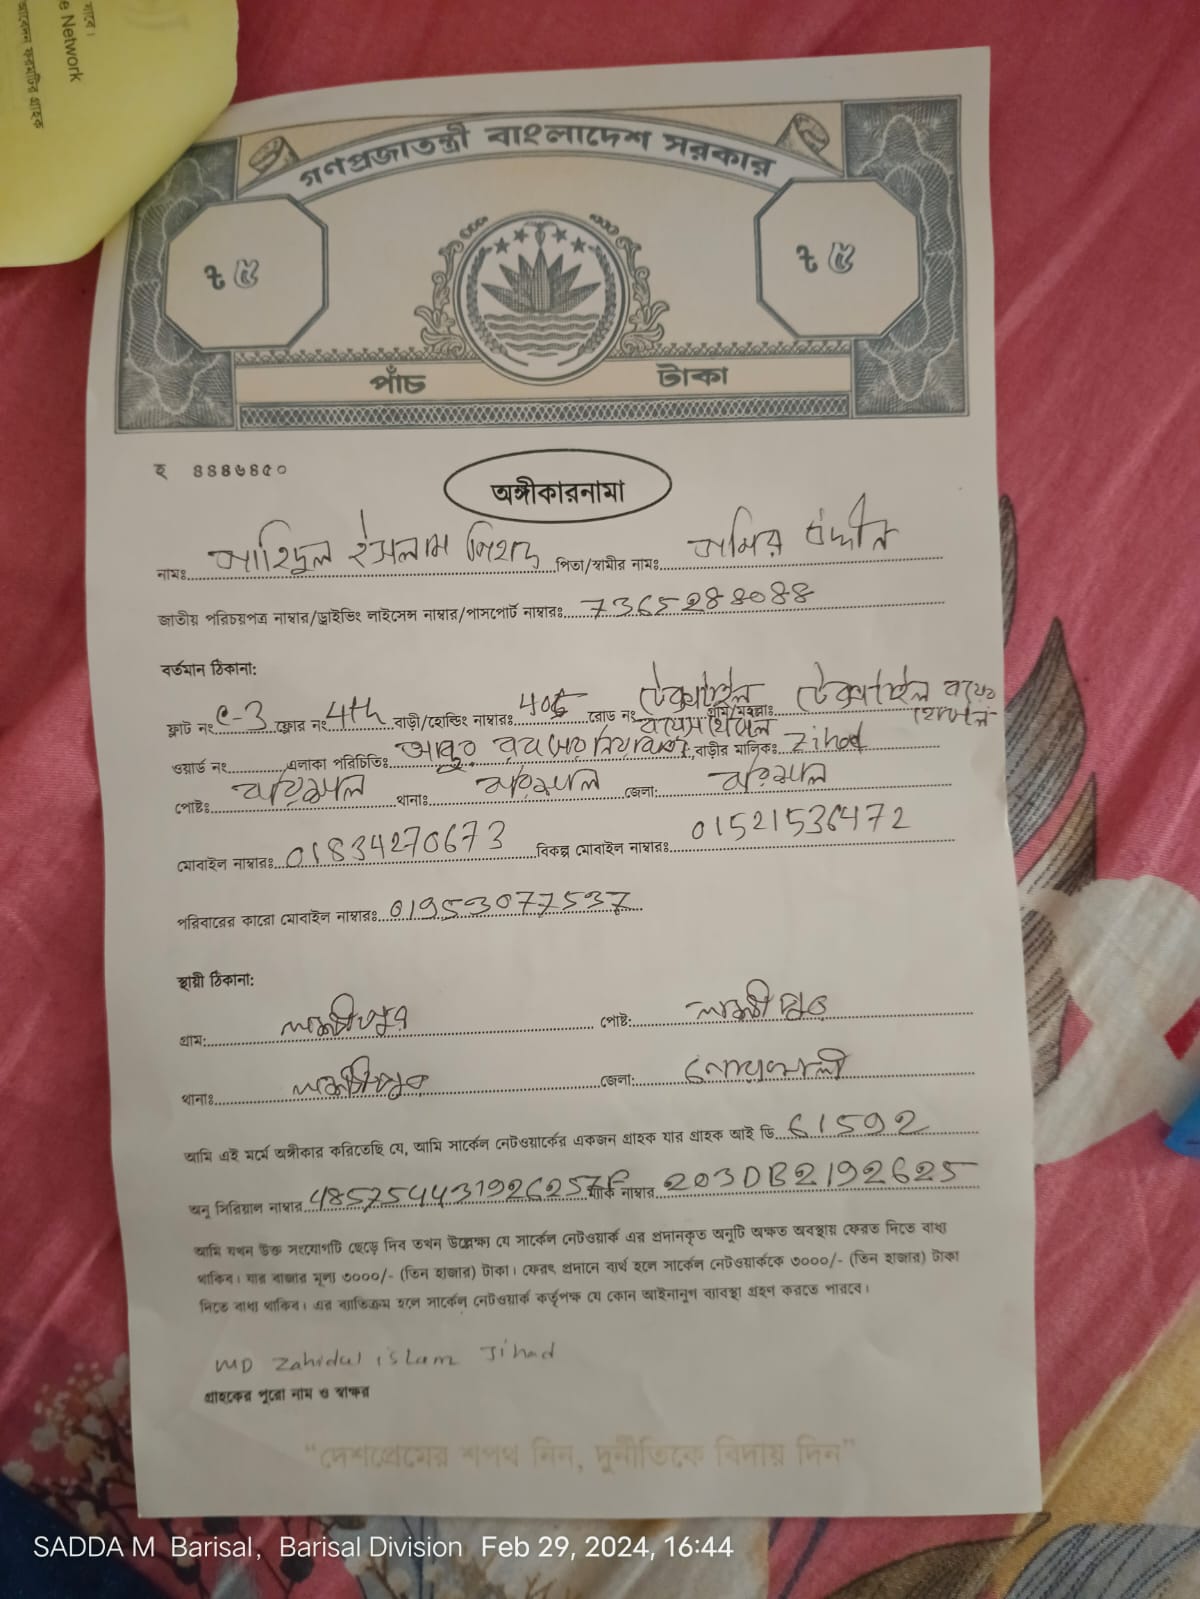 যাবে।
e Network
আবেদন ফরমটির গ্রাহক
গণপ্রজাতন্ত্রী বাংলাদেশ সরকার
৳ ৫ ৳ ৫
পাঁচ টাকা
হ ৪৪৪৬৪৫০
অঙ্গীকারনামা
নামঃ জাহিদুল ইসলাম জিহাদ পিতা/স্বামীর নামঃ জমির উদ্দীন
জাতীয় পরিচয়পত্র নাম্বার/ড্রাইভিং লাইসেন্স নাম্বার/পাসপোর্ট নাম্বারঃ
বর্তমান ঠিকানা:
ফ্লাট নং e-3 ফ্লোর নং 4th বাড়ী/হোল্ডিং নাম্বারঃ 405 রোড নং টেক্সটাইল গ্রাম/মহল্লাঃ টেক্সটাইল
ওয়ার্ড নং এলাকা পরিচিতিঃ বাড়ীর মালিকঃ Zihad
পোষ্টঃ বরিশাল থানাঃ বরিশাল জেলা: বরিশাল
মোবাইল নাম্বারঃ 01834270673 বিকল্প মোবাইল নাম্বারঃ 01521536472
পরিবারের কারো মোবাইল নাম্বারঃ 01953077537
স্থায়ী ঠিকানা:
গ্রাম: লক্ষ্মীপুর পোষ্ট: লক্ষ্মীপুর
থানাঃ লক্ষ্মীপুর জেলা: নোয়াখালী
আমি এই মর্মে অঙ্গীকার করিতেছি যে, আমি সার্কেল নেটওয়ার্কের একজন গ্রাহক যার গ্রাহক আই ডি 61592
অনু সিরিয়াল নাম্বার 485754431926257F ম্যাক নাম্বার 203DB2192625
আমি যখন উক্ত সংযোগটি ছেড়ে দিব তখন উল্লেক্ষ্য যে সার্কেল নেটওয়ার্ক এর প্রদানকৃত অনুটি অক্ষত অবস্থায় ফেরত দিতে বাধ্য
থাকিব। যার বাজার মূল্য ৩০০০/- (তিন হাজার) টাকা। ফেরৎ প্রদানে ব্যর্থ হলে সার্কেল নেটওয়ার্ককে ৩০০০/- (তিন হাজার) টাকা
দিতে বাধ্য থাকিব। এর ব্যতিক্রম হলে সার্কেল নেটওয়ার্ক কর্তৃপক্ষ যে কোন আইনানুগ ব্যবস্থা গ্রহণ করতে পারবে।
MD Zahidul islam Jihad
গ্রাহকের পুরো নাম ও স্বাক্ষর
"দেশপ্রেমের শপথ নিন, দুর্নীতিকে বিদায় দিন"
SADDA M Barisal, Barisal Division Feb 29, 2024, 16:44